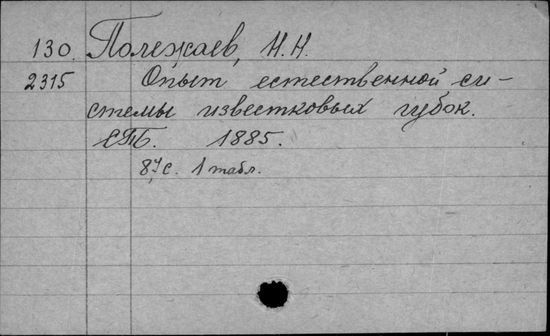 130. Полежаев, Н.Н.
2315 Опыт естественной си-
стемы известковых губок.
СПБ. 1885.
87с. 1 табл.